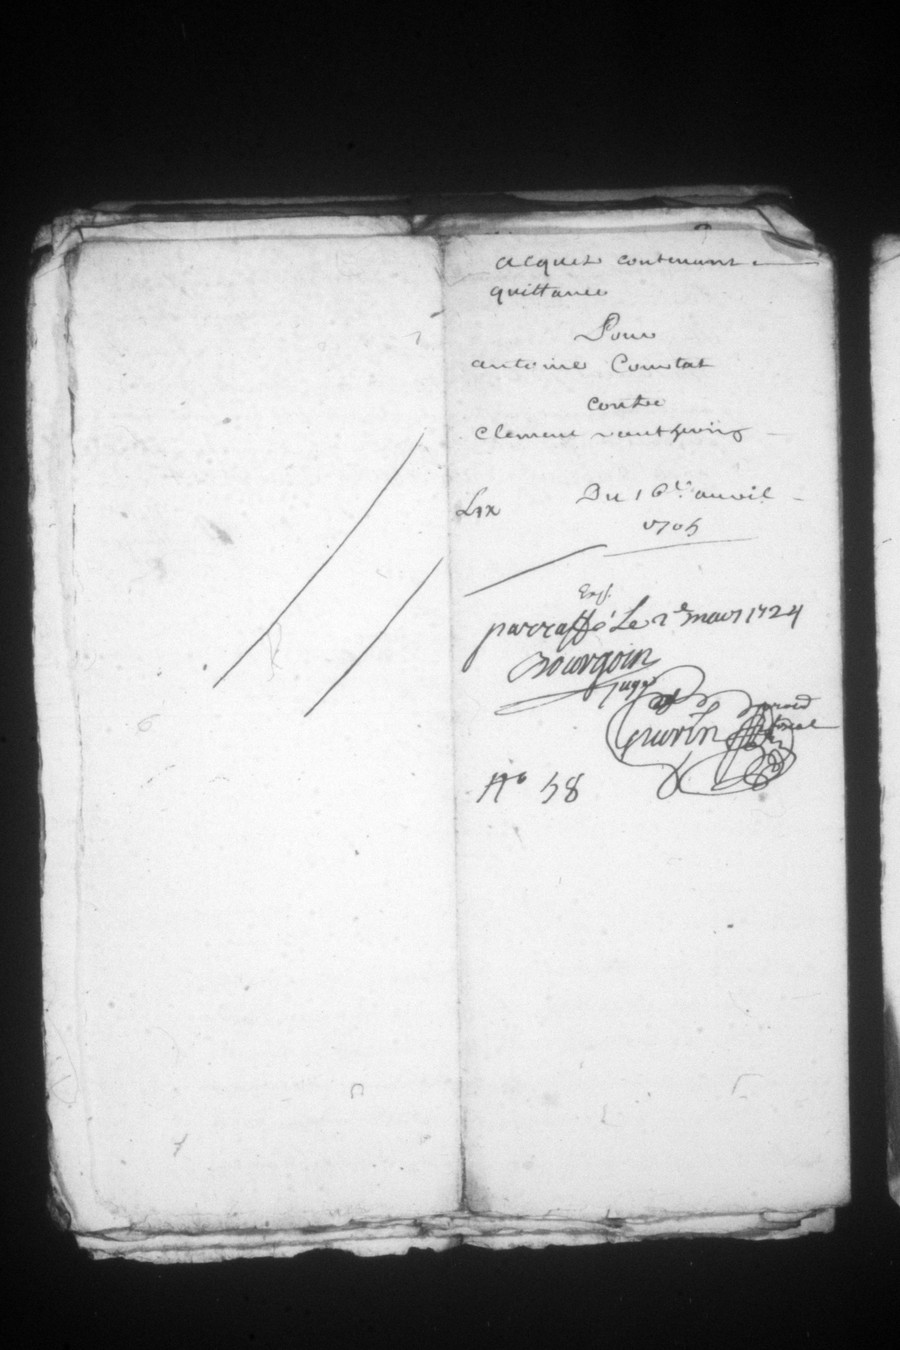 acquet contenant
quittance
Pour
antoine Courtat
contre
Clement vauthrin
Du 16e. auril
1705
parraffé Le 2e mars 1724
Bourgoin
juge
Guerin
No 58